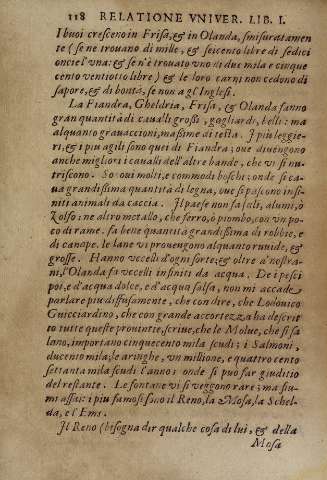 118 RELATIONE VNIVER. LIB. I.
I buoi crescono in Frisa, & in Olanda, smisuratamen
te (se ne trouano di mille, & seicento libre di sedici
oncie l'vna: & se n'è trouato vno di due mila e cinque
cento ventiotto libre) & le loro carni non cedono di
sapore, & di bontà, se non a gl'Inglesi.
La Fiandra, Gheldria, Frisa, & Olanda fanno
gran quantità di caualli grossi, gogliardi, belli: ma
alquanto grauaccioni, massime di testa. I piu leggie-
ri, & i piu agili sono quei di Fiandra; oue diuengono
anche migliori i caualli dell'altre bande, che vi si nu-
triscono. So oui molti, e commodi boschi; onde si ca-
ua grandissima quantità di legna, oue si pascono infi-
niti animali da caccia. Il paese non fa sali, alumi, ò
Zolfo: ne altro metallo, che ferro, ò piombo, con vn po-
co di rame. fa bene quantità grandissima di robbie, e
di canope. le lane vi prouengono alquanto ruuide, &
grosse. Hanno vccelli d'ogni sorte: & oltre a'nostra-
ni, l'Olanda fa vccelli infiniti da acqua. De i pesci
poi, e d'acqua dolce, e d'acqua salsa, non mi accade
parlare piu diffusamente, che con dire, che Lodouico
Guicciardino, che con grande accortezza ha descrit
to tutte queste prouintie, scriue, che le Molue, che si sa
lano, importano cinquecento mila scudi; i Salmoni,
ducento mila; le aringhe, vn millione, e quattro cento
settanta mila scudi l'anno: onde si può far giuditio
del restante. Le fontane vi si veggono rare; ma fiu-
mi assai: i piu famosi sono il Reno, la Mosa, la Schel-
da, e l'Ems.
Il Reno (bisogna dir qualche cosa di lui, & della
Mosa